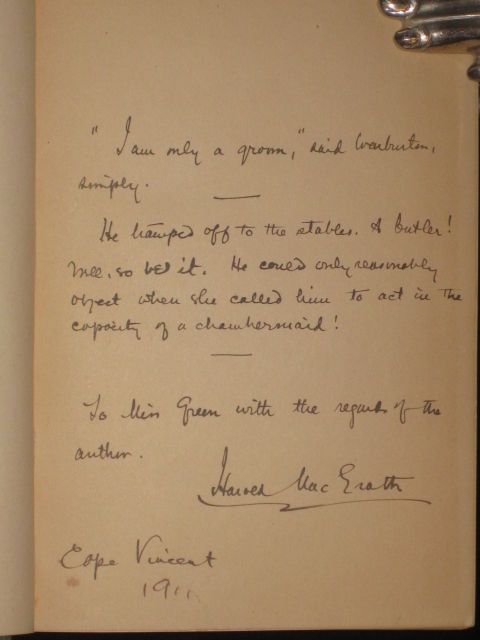 "I am only a groom," said Warburton,
simply.
He tramped off to the stables. A butler!
Well, so be it. He could only reasonably
object when she called him to act in the
capacity of a chambermaid!
To Miss Green with the regards of the
author.
Harold Mac Grath
Cape Vincent
1911